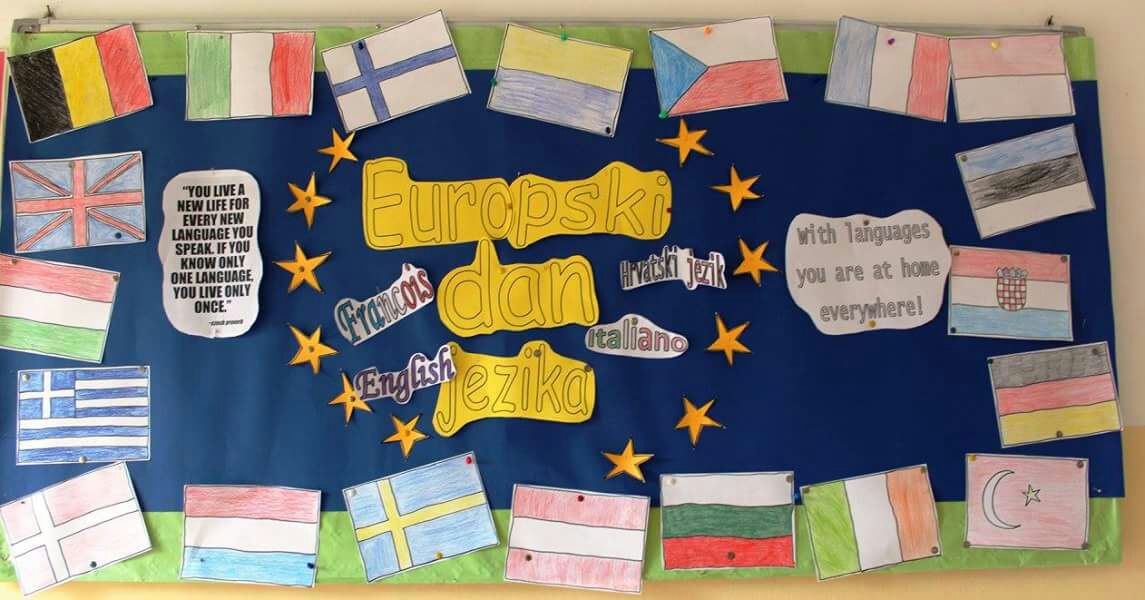 "YOU LIVE A
NEW LIFE FOR
EVERY NEW
LANGUAGE YOU
SPEAK. IF YOU
KNOW ONLY
ONE LANGUAGE,
YOU LIVE ONLY
ONCE."
-czech proverb
Europski
dan
jezika
Francois
English
Hrvatski jezik
italiano
With languages
you are at home
everywhere!